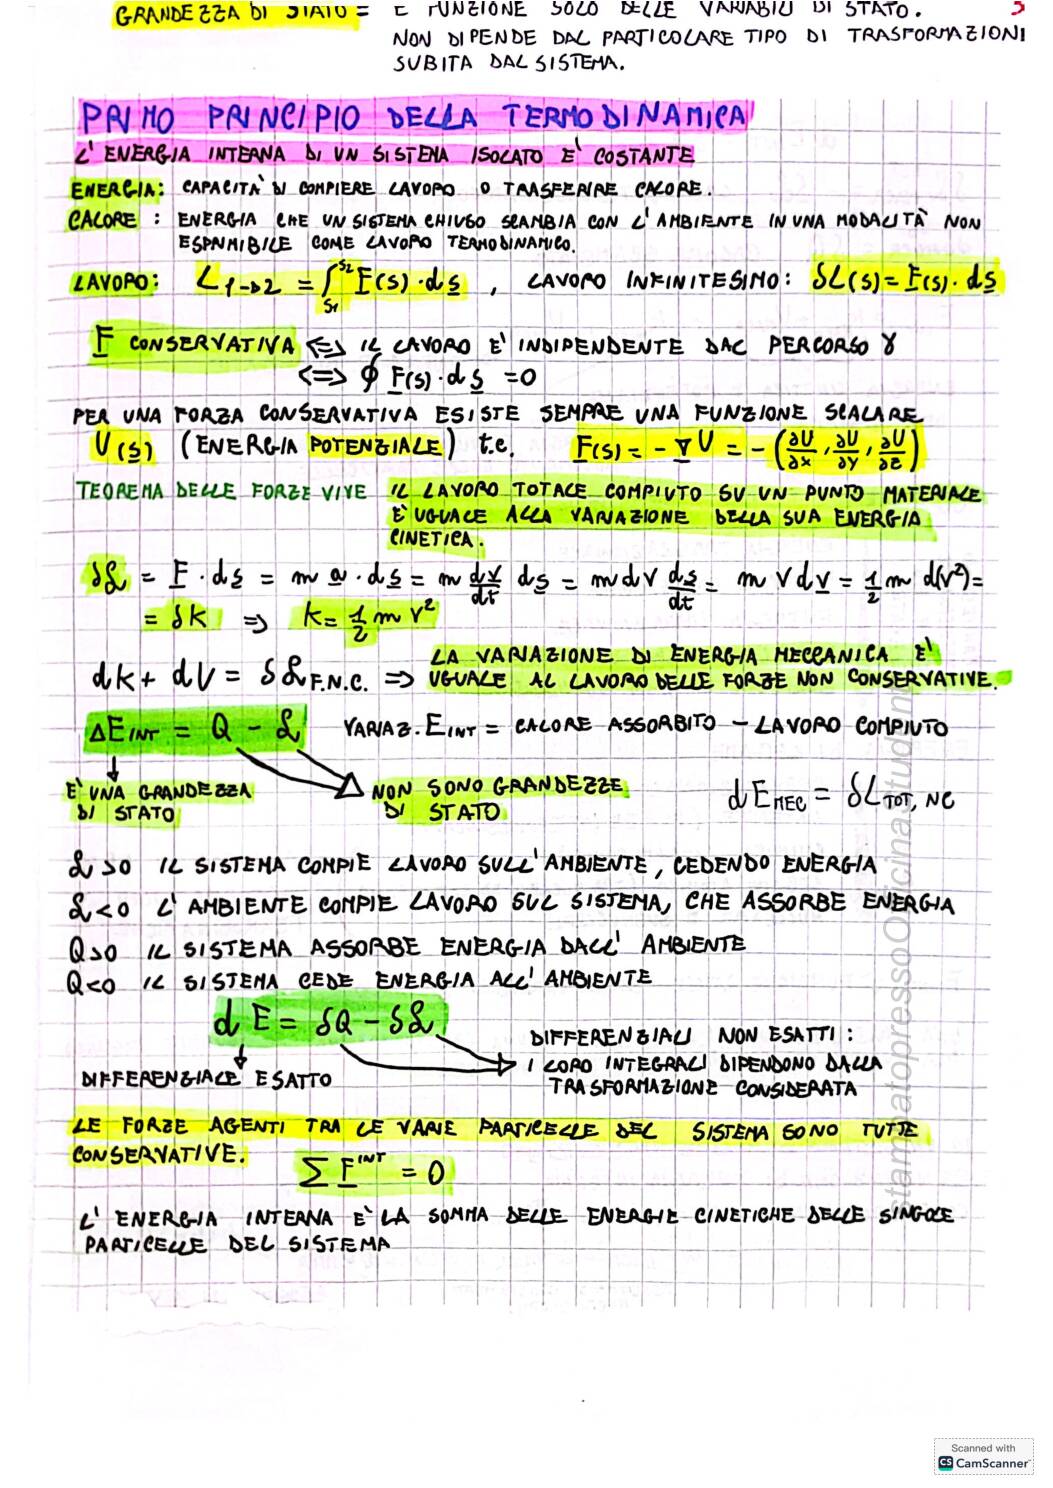 GRANDEZZA DI STATO = È FUNZIONE SOLO DELLE VARIABILI DI STATO.
NON DIPENDE DAL PARTICOLARE TIPO DI TRASFORMAZIONI
SUBITA DAL SISTEMA.
PRIMO PRINCIPIO DELLA TERMODINAMICA
L'ENERGIA INTERNA DI UN SISTEMA ISOLATO E' COSTANTE
ENERGIA: CAPACITÀ DI COMPIERE LAVORO O TRASFERIRE CALORE.
CALORE : ENERGIA CHE UN SISTEMA CHIUSO SCAMBIA CON L'AMBIENTE IN UNA MODALITÀ NON
ESPRIMIBILE COME LAVORO TERMODINAMICO.
LAVORO: L₁→₂ = ∫_{S1}^{S2} F(s)·ds , LAVORO INFINITESIMO: δL(s) = F(s)·ds
F CONSERVATIVA <=> IL LAVORO E' INDIPENDENTE DAL PERCORSO γ
<=> ∮ F(s)·ds = 0
PER UNA FORZA CONSERVATIVA ESISTE SEMPRE UNA FUNZIONE SCALARE
U(s) (ENERGIA POTENZIALE) t.c. F(s) = -∇U = -(∂U/∂x, ∂U/∂y, ∂U/∂z)
TEOREMA DELLE FORZE VIVE IL LAVORO TOTALE COMPIUTO SU UN PUNTO MATERIALE
E' UGUALE ALLA VARIAZIONE DELLA SUA ENERGIA
CINETICA.
δL = F·ds = m a·ds = m dv/dt ds = m dv ds/dt = m v dv = 1/2 m d(v²) =
= δk => k = 1/2 m v²
dk + dU = δL F.N.C. => LA VARIAZIONE DI ENERGIA MECCANICA E'
UGUALE AL LAVORO DELLE FORZE NON CONSERVATIVE.
ΔE INT = Q - L VARIAZ. E INT = CALORE ASSORBITO - LAVORO COMPIUTO
E' UNA GRANDEZZA
DI STATO
NON SONO GRANDEZZE
DI STATO
dE MEC = δL TOT, NC
L>0 IL SISTEMA COMPIE LAVORO SULL'AMBIENTE, CEDENDO ENERGIA
L<0 L'AMBIENTE COMPIE LAVORO SUL SISTEMA, CHE ASSORBE ENERGIA
Q>0 IL SISTEMA ASSORBE ENERGIA DALL'AMBIENTE
Q<0 IL SISTEMA CEDE ENERGIA ALL'AMBIENTE
dE = δQ - δL
DIFFERENZIALE ESATTO
DIFFERENZIALI NON ESATTI :
I LORO INTEGRALI DIPENDONO DALLA
TRASFORMAZIONE CONSIDERATA
LE FORZE AGENTI TRA LE VARIE PARTICELLE DEL SISTEMA SONO TUTTE
CONSERVATIVE.
Σ F^INT = 0
L'ENERGIA INTERNA E' LA SOMMA DELLE ENERGIE CINETICHE DELLE SINGOLE
PARTICELLE DEL SISTEMA
Scanned with
CS CamScanner